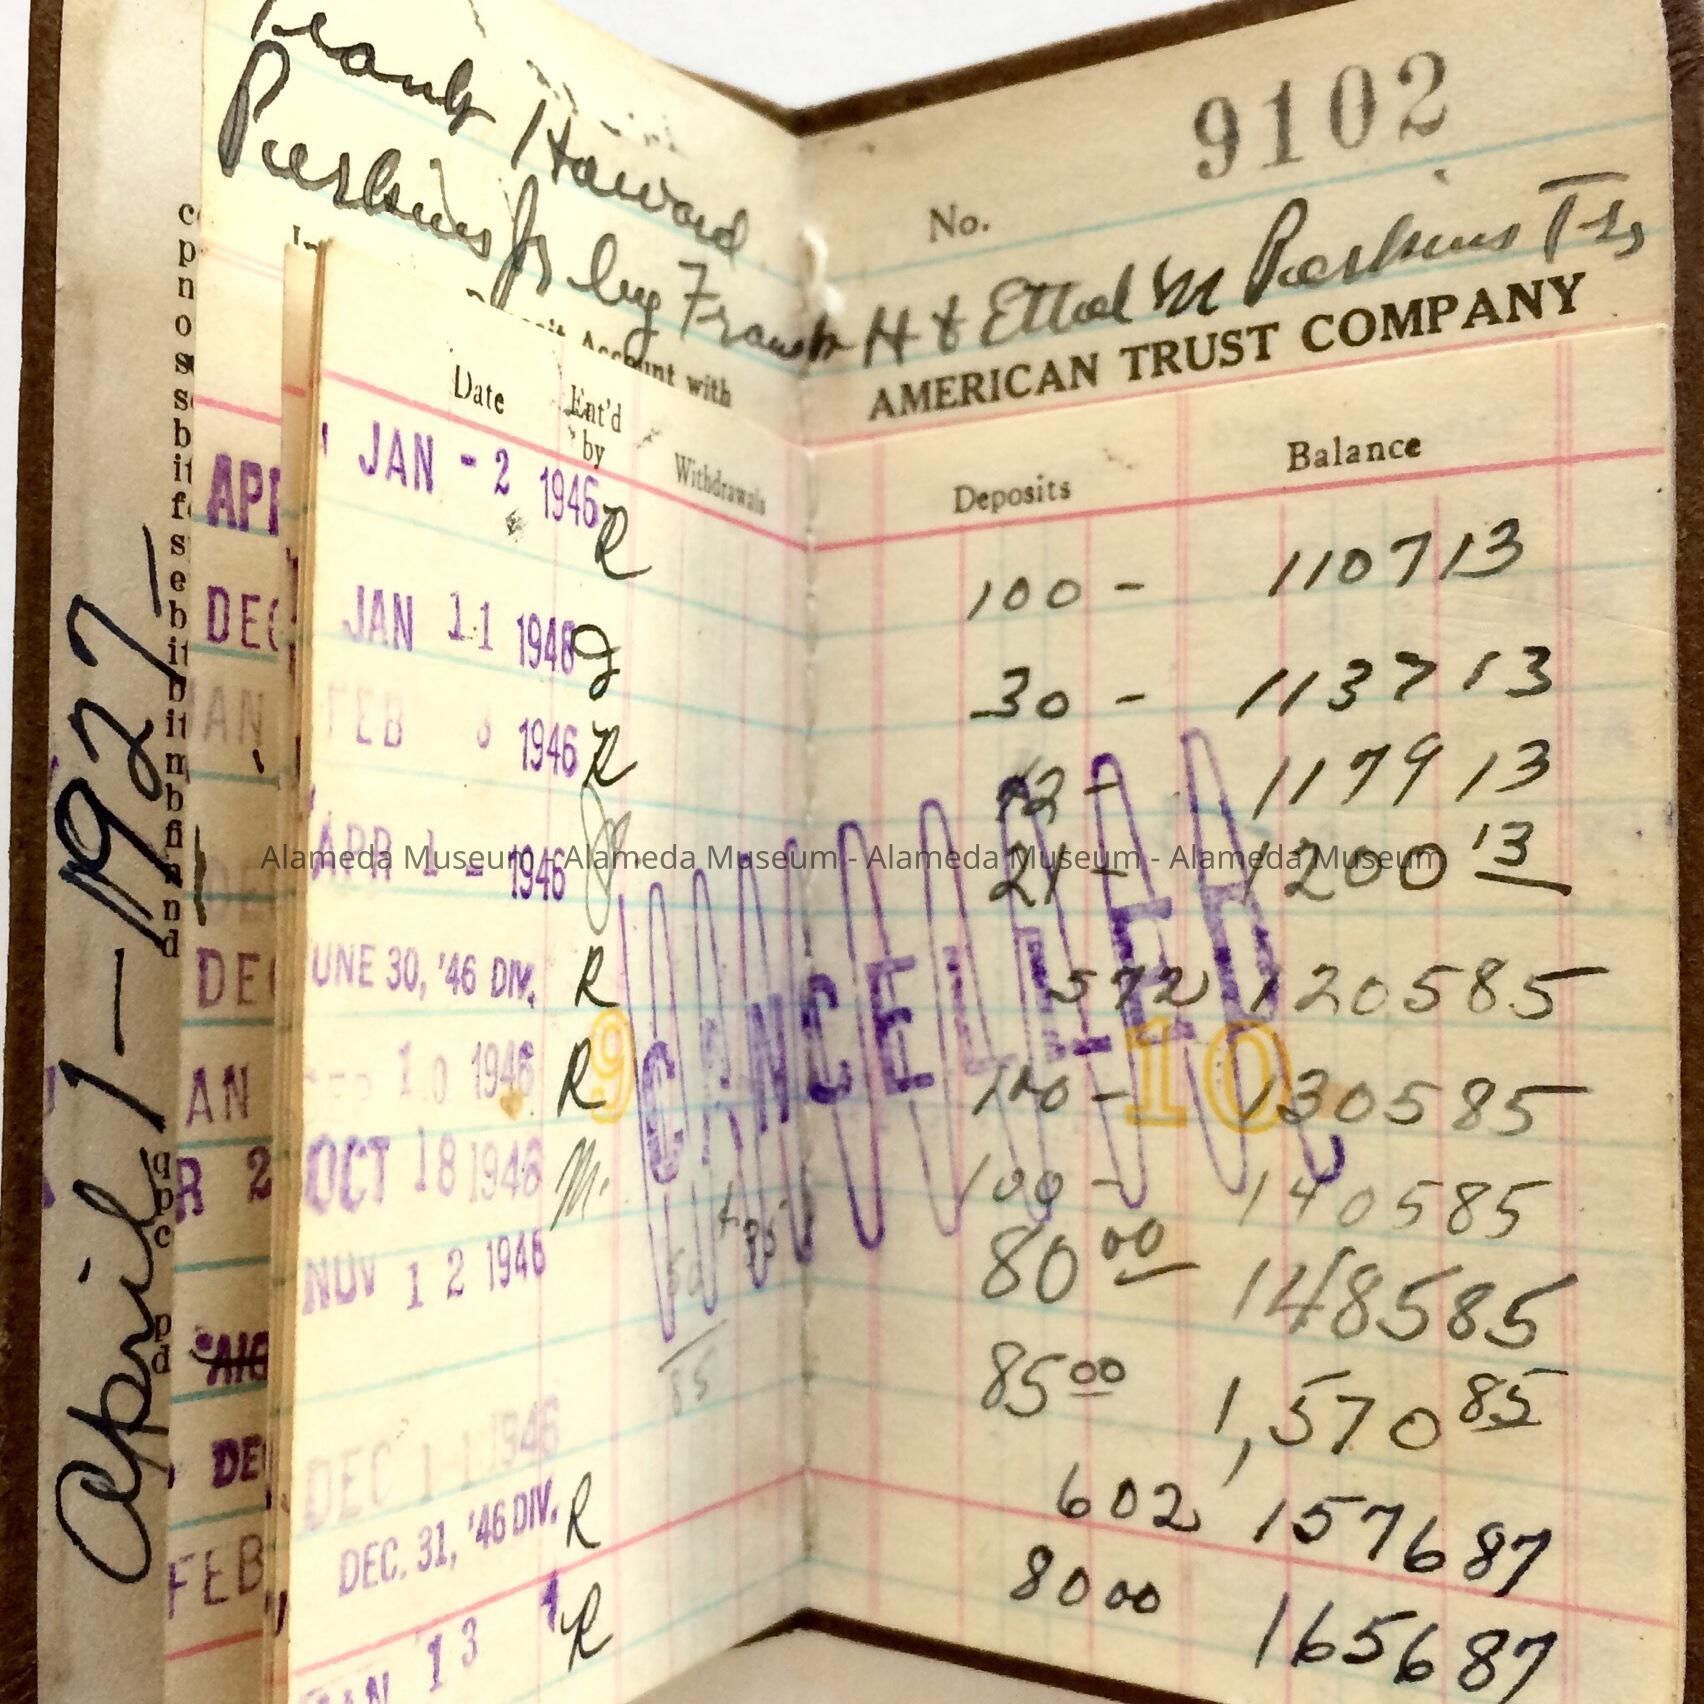 April 1 — 1927 —
Frank Howard
Perkins Jr by Frank H & Ethel M Perkins Trs
No. 9102
Account with AMERICAN TRUST COMPANY
Date Ent'd by Withdrawals Deposits Balance
JAN - 2 1946 R 100 - 1107 13
JAN 11 1946 30 - 1137 13
FEB 1946 R 42 - 1179 13
APR 1 - 1946 21 - 1200 13
JUNE 30, '46 DIV. R 5 72 1205 85
10 1946 R 100 - 1305 85
9 CANCELLED 10
OCT 18 1946 M. 100 - 1405 85
NOV 12 1946 80 00 1485 85
85
DEC 11 1946 85 00 1,570 85
DEC. 31, '46 DIV. R 6 02 1576 87
JAN 13 R 80 00 1656 87
APR
DEC
AN
DEC
AN
R 2
DE
FEB
Alameda Museum - Alameda Museum - Alameda Museum - Alameda Museum